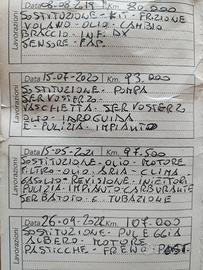 Data 08-08-2019 Km. 80.000
SOSTITUZIONE - KIT - FRIZIONE
VOLANO - OLIO - CAMBIO
BRACCIO - INF. DX
SENSORE - FAP.
Lavorazioni
Data 15-07-2020 Km. 93.000
SOSTITUZIONE - POMPA
SERVOSTERZO -
VASCHETTA SERVOSTERZO
OLIO - IDROGUIDA
E - PULIZIA - IMPIANTO
Lavorazioni
Data 15-05-2021 Km. 97.500
SOSTITUZIONE - OLIO - MOTORE
FILTRO - OLIO - ARIA - CLIMA
GASOLIO - REVISIONE - INIETTORI
PULIZIA - IMPIANTO CARBURANTE
SERBATOIO - E - TUBAZIONE
Lavorazioni
Data 26-09-2022 Km. 107.000
SOSTITUZIONE - PULEGGIA
ALBERO - MOTORE
PASTICCHE - FRENO POST.
Lavorazioni